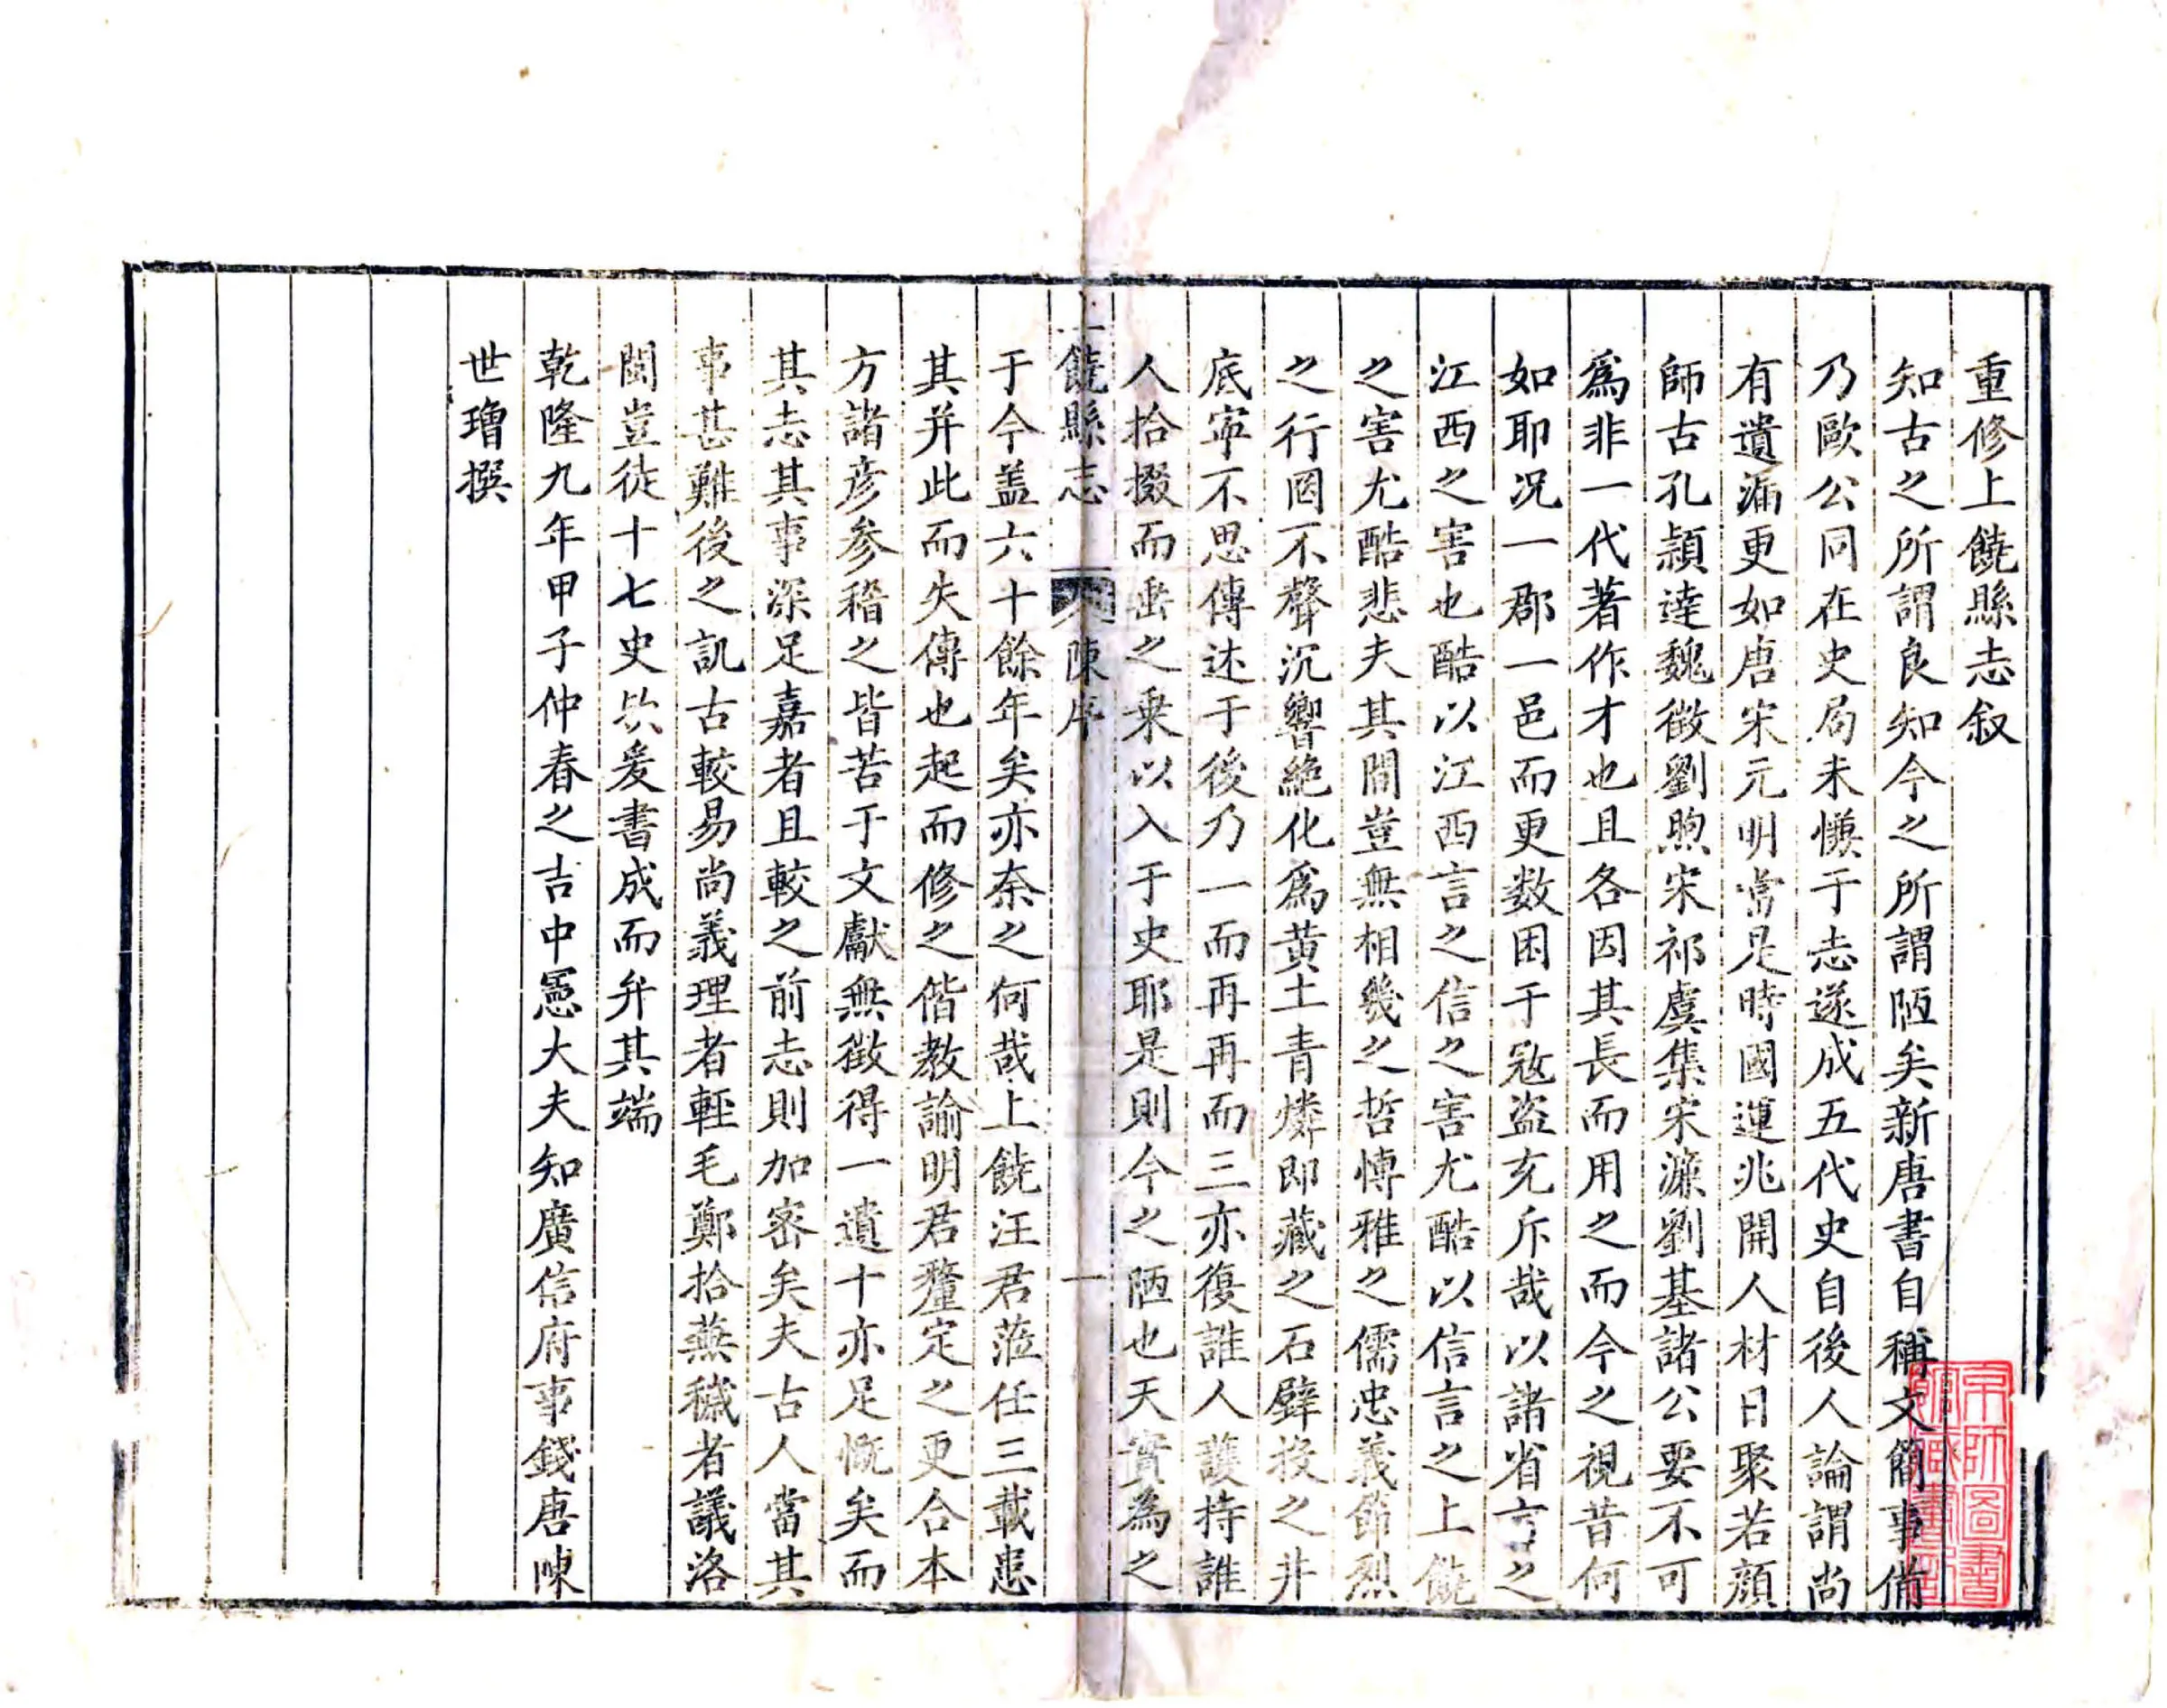 重修上饒縣志叙
知古之所謂良知今之所謂陋矣新唐書自稱文簡事備
乃歐公同在史局未慊于志遂成五代史自後人論謂尚
有遺漏更如唐宋元明當是時國運兆開人材日聚若顔
師古孔頴逹魏徴劉煦宋祁虞集宋濂劉基諸公要不可
爲非一代著作才也且各因其長而用之而今之視昔何
如耶况一郡一邑而更数困于冦盗充斥哉以諸省言之
江西之害也酷以江西言之信之害尤酷以信言之上饒
之害尤酷悲夫其間豈無相幾之哲愽雅之儒忠義節烈
之行罔不聲沉響絶化爲黄土青燐即藏之石壁投之井
底寕不思傳述于後乃一而再再而三亦復誰人護持誰
人拾掇而乗之以入于史耶是則今之陋也天實為之
上饒縣志
陳序
一
于今盖六十餘年矣亦奈之何哉上饒汪君蒞任三載患
其并此而失傳也起而修之偕教諭明君釐定之更合本
方諸彦参稽之皆苦于文獻無徴得一遺十亦足慨矣而
其志其事深足嘉者且較之前志則加宻矣夫古人當其
事甚難後之訊古較易尚義理者輕毛鄭拾蕪穢者議洛
閩豈徒十七史欤爰書成而弁其端
乾隆九年甲子仲春之吉中憲大夫知廣信府事錢唐陳
世璔撰
京師圖書
館藏書記